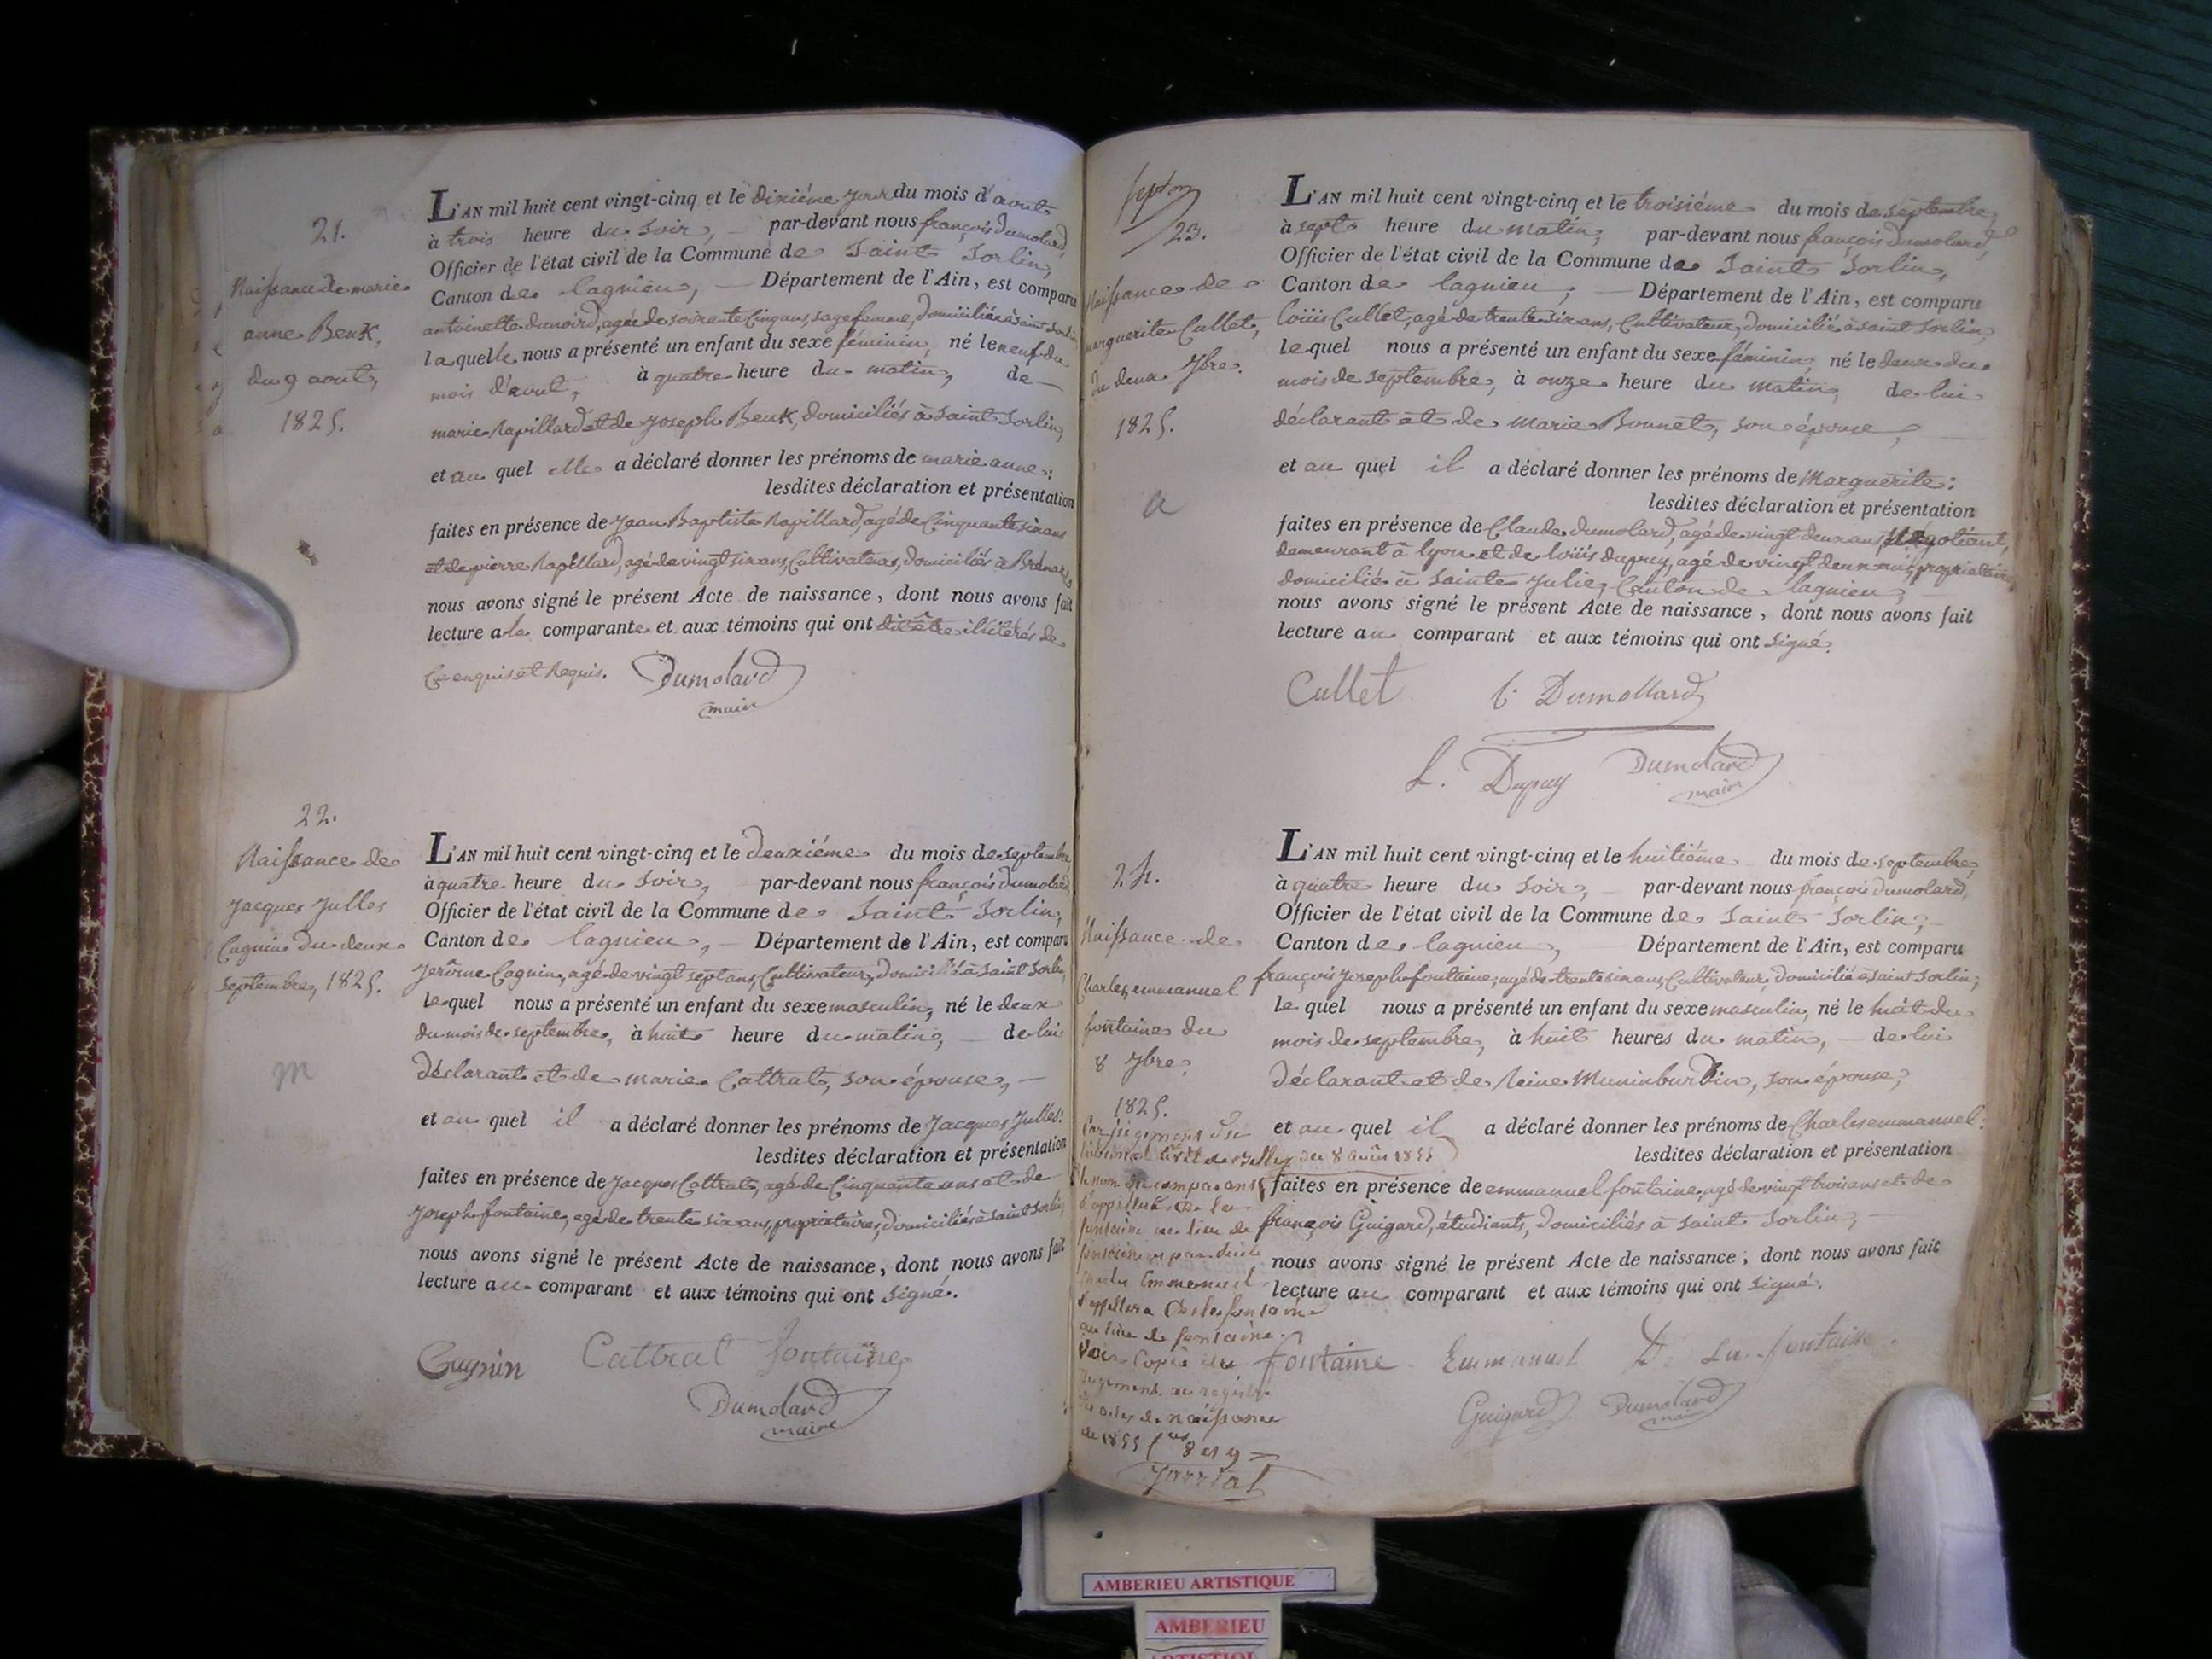 21.
Naissance de marie
anne Beuk,
du 9 aout,
1825.
L'AN mil huit cent vingt-cinq et le dixiéme jour du mois d'aout
à trois heure du soir, par-devant nous françois dumolard,
Officier de l'état civil de la Commune de Saint Sorlin,
Canton de lagnieu, — Département de l'Ain, est comparu
antoinette dunoird, agée de soixante cinq ans, sage femme, domiciliée à saint sorlin
laquelle nous a présenté un enfant du sexe féminin, né le neuf du
mois d'aout, à quatre heure du matin, de
marie Rapillard et de joseph Beuk, domiciliés à saint Sorlin,
et au quel elle a déclaré donner les prénoms de marie anne;
lesdites déclaration et présentation
faites en présence de jean Baptiste Rapillard, agé de Cinquante six ans
et de pierre Rapillard, agé de vingt six ans, Cultivateurs, domiciliés à
nous avons signé le présent Acte de naissance, dont nous avons fait
lecture a la comparante et aux témoins qui ont dit être illitérés de
Ce enquis et Requis. Dumolard
maire
22.
Naissance de
jacques julles
Cugnin du deux
septembre, 1825.
m
L'AN mil huit cent vingt-cinq et le deuxiéme du mois de septembre
à quatre heure du soir, par-devant nous françois dumolard,
Officier de l'état civil de la Commune de Saint Sorlin,
Canton de lagnieu, — Département de l'Ain, est comparu
jerôme Cugnin, agé de vingt sept ans, Cultivateur, domicilié à saint Sorlin,
le quel nous a présenté un enfant du sexe masculin, né le deux
du mois de septembre, à huit heure du matin, — de lui
déclarant et de marie Cattrat, son épouse, —
et au quel il a déclaré donner les prénoms de jacques julles:
lesdites déclaration et présentation
faites en présence de jacques Cattrat, agé de Cinquante ans et de
joseph fontaine, agé de trente six ans, propriétaires, domiciliés à saint Sorlin,
nous avons signé le présent Acte de naissance, dont nous avons fait
lecture au comparant et aux témoins qui ont signé.
Cugnin Cattrat fontaine
Dumolard
maire
septem
23.
Naissance de
marguerite Cullet,
du deux 7bre
1825.
a
L'AN mil huit cent vingt-cinq et le troisiéme du mois de septembre,
à sept heure du matin, par-devant nous françois dumolard,
Officier de l'état civil de la Commune de Saint Sorlin,
Canton de lagnieu, — Département de l'Ain, est comparu
loüis Cullet, agé de trente six ans, Cultivateur, domicilié à saint Sorlin,
le quel nous a présenté un enfant du sexe féminin, né le deux du
mois de septembre, à onze heure du matin, de lui
déclarant et de marie Bonnet, son épouse,
et au quel il a déclaré donner les prénoms de Marguerite;
lesdites déclaration et présentation
faites en présence de Claude dumolard, agé de vingt deux ans, Négotiant,
demeurant à lyon et de loüis dupuy, agé de vingt deux ans, propriétaire
domicilié à Sainte julie, Canton de lagnieu,
nous avons signé le présent Acte de naissance, dont nous avons fait
lecture au comparant et aux témoins qui ont signé.
Cullet C. Dumollard
L. Dupuy Dumolard
maire
24.
Naissance de
Charles emmanuel
fontaine du
8 7bre
1825.
Par jugement du
tribunal civil de Belley du 8 1855
le nom du comparant
s'appellera De la
fontaine au lieu de
fontaine
Charles Emmanuel
s'appellera De la fontaine
au lieu de fontaine.
Voir Copie du
jugement au registre
des actes de naissance
de 1855 8 et 9
L'AN mil huit cent vingt-cinq et le huitiéme du mois de septembre,
à quatre heure du soir, — par-devant nous françois dumolard,
Officier de l'état civil de la Commune de Saint Sorlin,
Canton de lagnieu, Département de l'Ain, est comparu
françois joseph fontaine, agé de trente six ans, Cultivateur, domicilié à saint sorlin;
le quel nous a présenté un enfant du sexe masculin, né le huit du
mois de septembre, à huit heures du matin, — de lui
déclarant et de Reine Muninburdin, son épouse,
et au quel il a déclaré donner les prénoms de Charles emmanuel:
lesdites déclaration et présentation
faites en présence de emmanuel fontaine, agé de vingt trois ans et de
françois Guigard, étudiants, domiciliés à saint Sorlin,
nous avons signé le présent Acte de naissance, dont nous avons fait
lecture au comparant et aux témoins qui ont signé.
fontaine Emmanuel De La fontaine
Guigard Dumolard
maire
AMBERIEU ARTISTIQUE
AMBERIEU
ARTISTIQUE